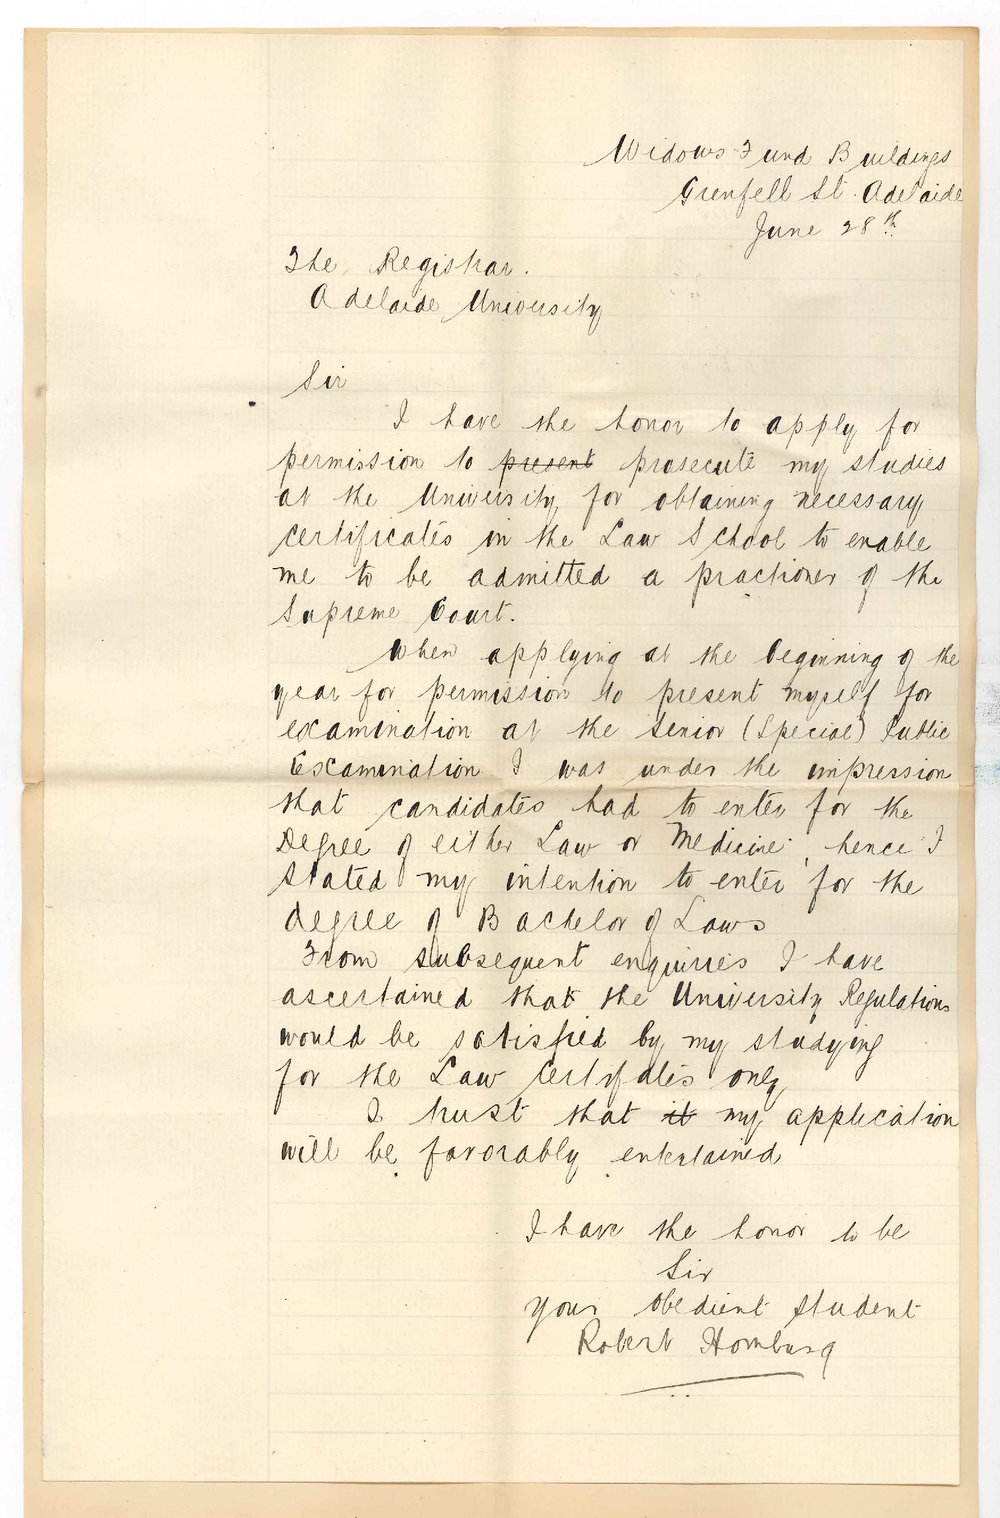 Widows Fund Buildings
Grenfell St. Adelaide
June 28th
The Registrar.
Adelaide University
Sir
I have the honor to apply for
permission to present prosecute my studies
at the University for obtaining necessary
certificates in the Law School to enable
me to be admitted a practioner of the
Supreme Court.
When applying at the beginning of the
year for permission to present myself for
examination at the Senior (Special) Public
Examination I was under the impression
that candidates had to enter for the
Degree of either Law or Medicine, hence I
stated my intention to enter for the
degree of Bachelor of Laws
From subsequent enquiries I have
ascertained that the University Regulations
would be satisfied by my studying
for the Law Certifates only
I trust that it my application
will be favorably entertained
I have the honor to be
Sir
your obedient student
Robert Homburg